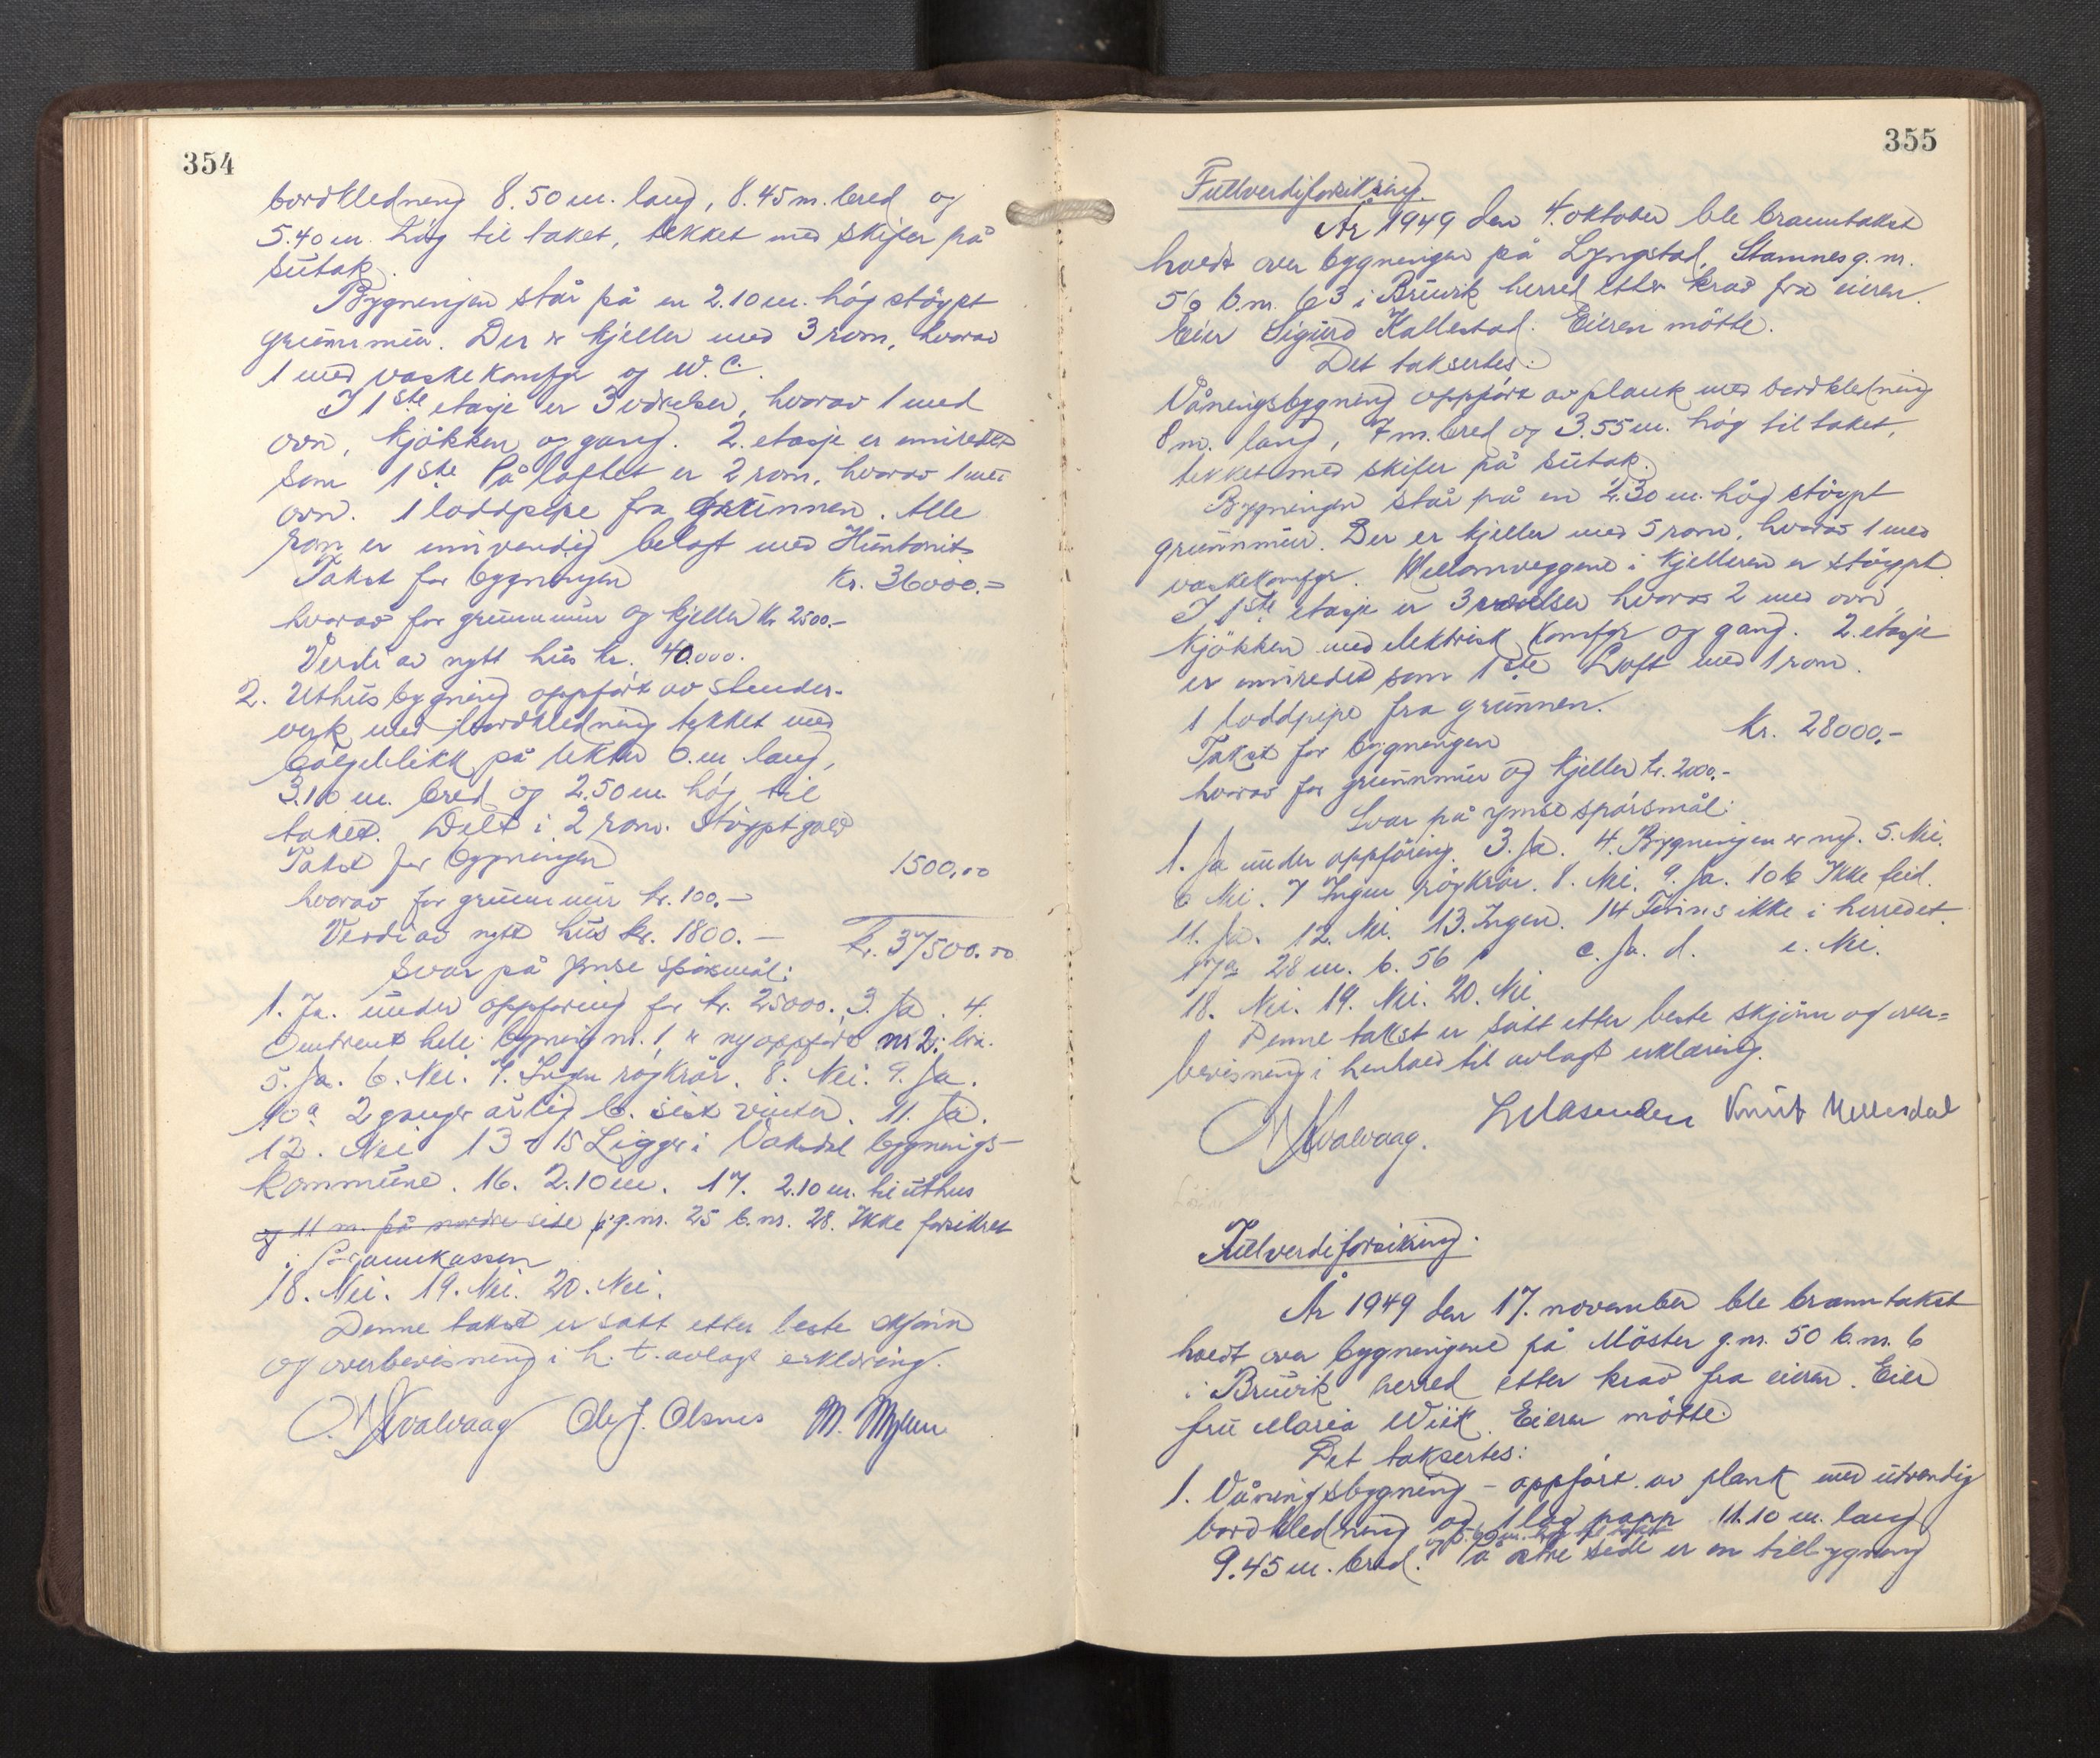 354
bordkledning 8.50 m. lang, 8.45 m. bred og
5.40 m. høg til taket, tekket med skifer på
sutak.
Bygningen står på en 2.10 m. høg støypt
grunnmur. Der er kjeller med 3 rom, hvorav
1 med vaskekomfyr og W.C.
I 1ste etasje er 3 værelser, hvorav 1 med
ovn, kjøkken og gang. 2. etasje er innredet
som 1ste. På loftet er 2 rom, hvorav 1 med
ovn. 1 loddpipe fra grunnen. Alle
rom er innvendig belagt med Huntonit
Takst for bygningen Kr. 36000.=
hvorav for grunnmur og kjeller kr 2500.-
Verdi av nytt hus kr. 40.000.
2. Uthusbygning oppført av stender-
verk med bordkledning tekket med
bølgeblikk på lekter 6. m. lang,
3.10 m. bred og 2.50 m. høg til
taket. Delt i 2 rom. Støypt golv
Takst for bygningen 1500,00
hvorav for grunnmur kr. 100.-
Verdi av nytt hus kr. 1800.- kr. 37500.00
Svar på ymse spørsmål:
1. Ja. under oppføring for kr. 25000. 3. Ja. 4.
Omtrent hele bygning nr. 1, er ny oppført nr 2:
5. Ja. 6. Nei. 7. Ingen røykrør. 8. Nei. 9. Ja.
10a 2 ganger årlig b. sist vinter. 11. Ja.
12. Nei 13 - 15 Ligger i Vaksdal bygnings-
kommune. 16. 2.10 m. 17. 2.10 m. til uthus
og 11 m. på nordre side på g.nr. 25 b.nr. 28. Ikke forsikret
i Brannkassen
18. Nei. 19. Nei. 20. Nei.
Denne takst er satt etter beste skjønn
og overbevisning i h. t. avlagt erklæring.
Kvalvaag Ole J. Olsnes M. Myhre
355
Fullverdiforsikring.
År 1949 den 4. oktober ble branntakst
holdt over bygningen på Lyngstad, Stamnes g.nr.
56 b.nr. 63 i Bruvik herred etter krav fra eieren.
Eier Sigurd Kallestad. Eieren møtte.
Det taksertes:
Våningsbygning oppført av plank med bordkledning
8 m. lang, 7 m. bred og 3.55 m. høg til taket,
tekket med skifer på sutak.
Bygningen står på en 2.30 m. høg støypt
grunnmur. Der er kjeller med 5 rom, hvorav 1 med
vaskekomfyr. Mellomveggene i kjelleren er støypt.
I 1ste etasje er 3 værelser hvorav 2 med ovn,
kjøkken med elektrisk komfyr og gang. 2. etasje
er innredet som 1ste Loft med 1 rom.
1 loddpipe fra grunnen.
Takst for bygningen kr. 28000.-
hvorav for grunnmur og kjeller kr. 2000.-
Svar på ymse spørsmål:
1. Ja under oppføring. 3. Ja. 4. Bygningen er ny. 5. Nei.
6 Nei. 7 Ingen røykrør. 8. Nei. 9. Ja. 10 b Ikke feid.
11. Ja. 12. Nei. 13. Ingen. 14 Finns ikke i herredet.
17a 28 m. b. 56 c. Ja. d. e. Nei.
18. Nei. 19. Nei. 20. Nei
Denne takst er satt etter beste skjønn og over=
bevisning i henhold til avlagt erklæring.
Kvalvaag. Knut
Fullverdiforsikring.
År 1949 den 17. november ble branntakst
holdt over bygningene på Möster g.nr. 50 b.nr. 6
i Bruvik herred etter krav fra eieren. Eier
fru Maria Wiik. Eieren møtte.
Det taksertes:
1. Våningsbygning - oppført av plank med utvendig
bordkledning og 1 lag papp 11.10 m. lang
9.45 m. bred. På østre side er en tilbygning